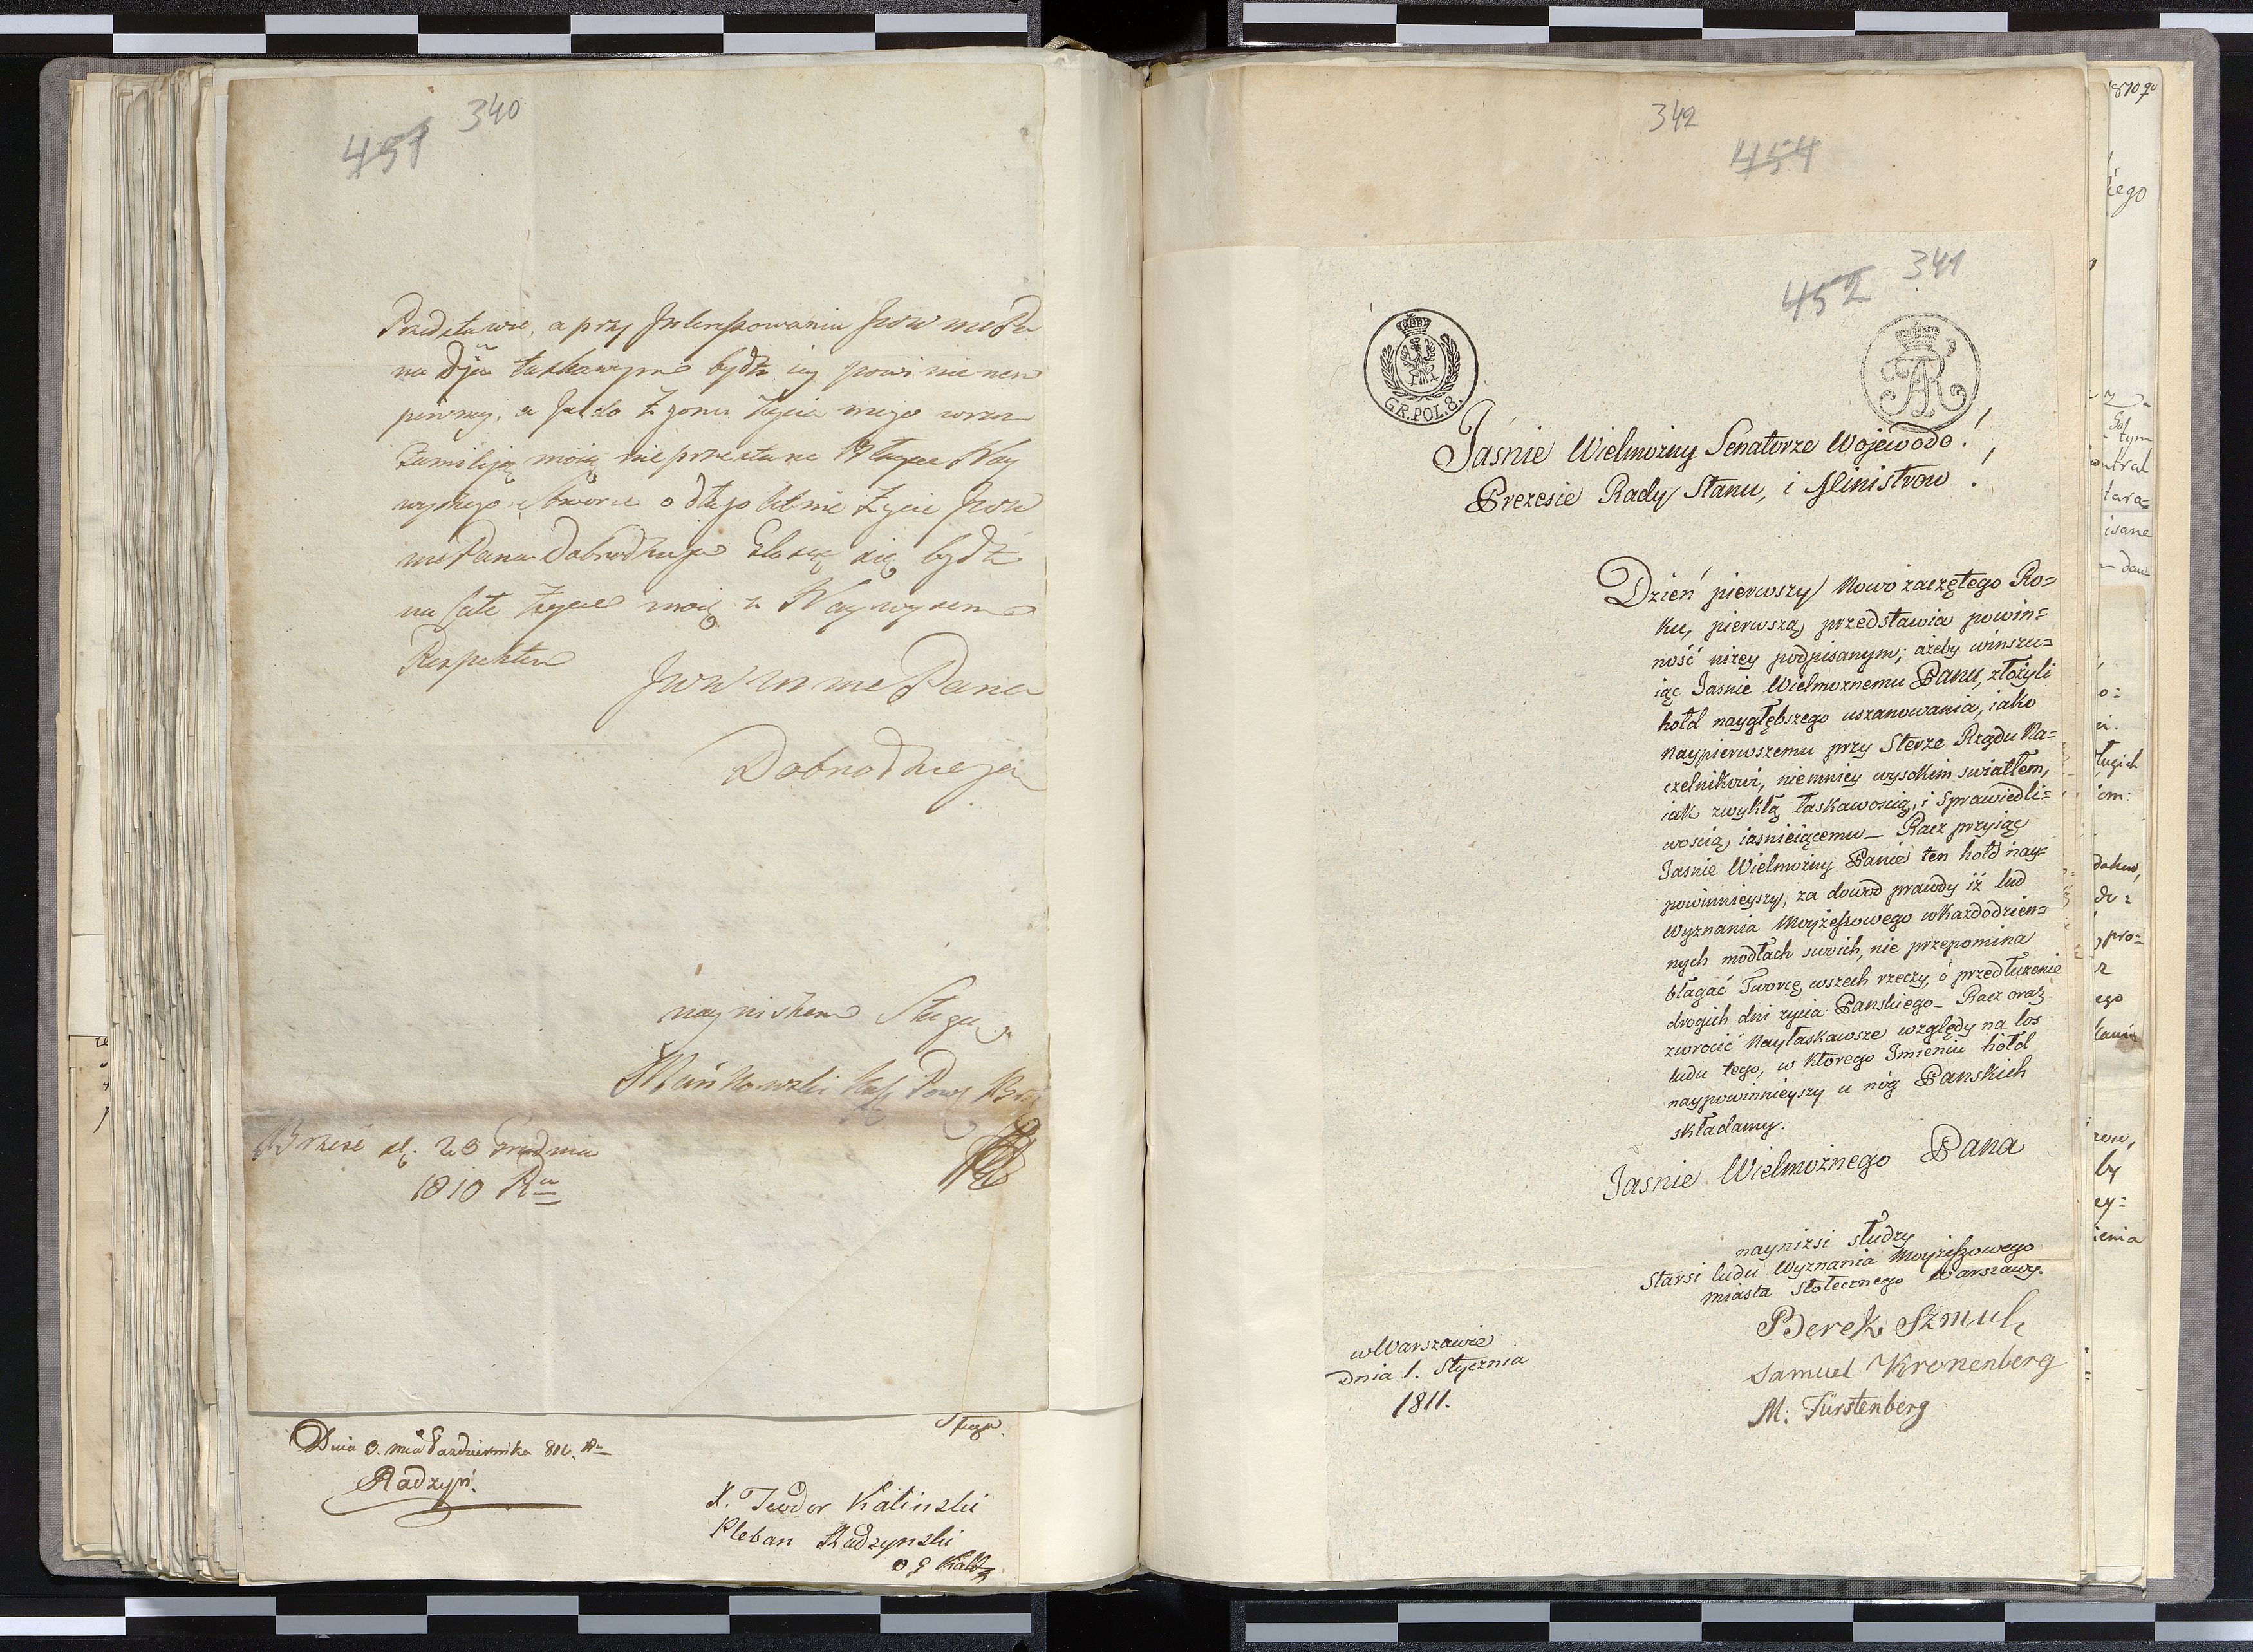 340
451
Przedstawie, a przy Interessowaniu
na łaskawym bydź powinienem
pewny, a Ja do Zgonu Życia mego wraz
Familiją moią nie przestanę Błagać Nay
o długo letnie Życie Jww
mć Pana Dobrodzieja się bydź
na całe życie moię z Naywyszem
Respektem
Jww mc Pana
Dobrodzieja
nayniszem Sługą
Brzesć d. 23 Grudnia
1810 Ru
Sługa.
Dnia 3. mca Pazdziernika 810. Ru
Radzyń.
X. Teodor Kalinski
Pleban Radzynski
342
454
341
452
GR.POL.8.
Jaśnie Wielmożny Senatorze Wojewodo!
Prezesie Rady Stanu, i Ministrow!
Dzień pierwszy Nowo zaczętego Ro=
ku, pierwszą przedstawia powin=
ność niżey podpisanym; ażeby winszu=
iąc Jasnie Wielmożnemu Panu, złożyli
hołd naygłębszego uszanowania, iako
Naypierwszemu przy Sterze Rządu Na=
czelnikowi, niemniey wysokim swiatłem,
iak zwykłą łaskawoscią, i Sprawiedli=
woscią iasnieiącemu_ Racz przyiąc
Jasnie Wielmożny Panie ten hołd nay=
powinnieyszy, za dowod prawdy iż lud
Wyznania Moyżeszowego w Każdodzien=
nych modłach swoich, nie przepomina
błagać Tworcę wszech rzeczy, o przedłużenie
drogich dni życia Panskiego_ Racz oraz
zwrocić Nayłaskawsze względy na los
ludu tego, w Ktorego Imieniu hołd
naypowinnieyszy u nóg Panskich
składamy.
Jasnie Wielmożnego Pana
nayniżsi słudzy
Starsi ludu Wyznania Moyżeszowego
miasta Stołecznego Warszawy.
Berek Szmul
Samuel Kronenberg
M: Fürstenberg
w Warszawie
Dnia 1. Stycznia
1811.